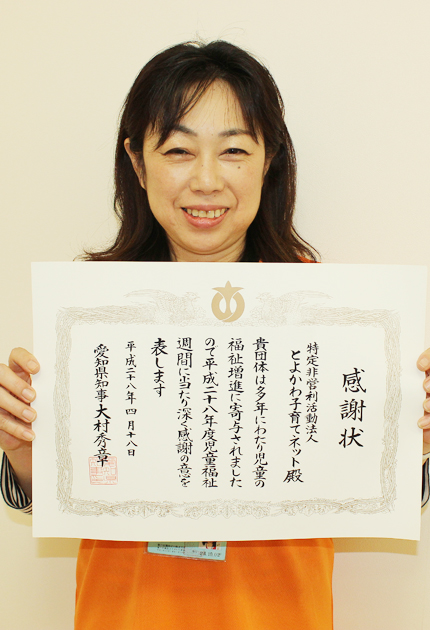 感謝状
特定非営利活動法人
とよかわ子育てネット殿
貴団体は多年にわたり児童の
福祉増進に寄与されました
ので平成二十八年度児童福祉
週間に当たり深く感謝の意を
表します
平成二十八年四月十八日
愛知県知事大村秀章